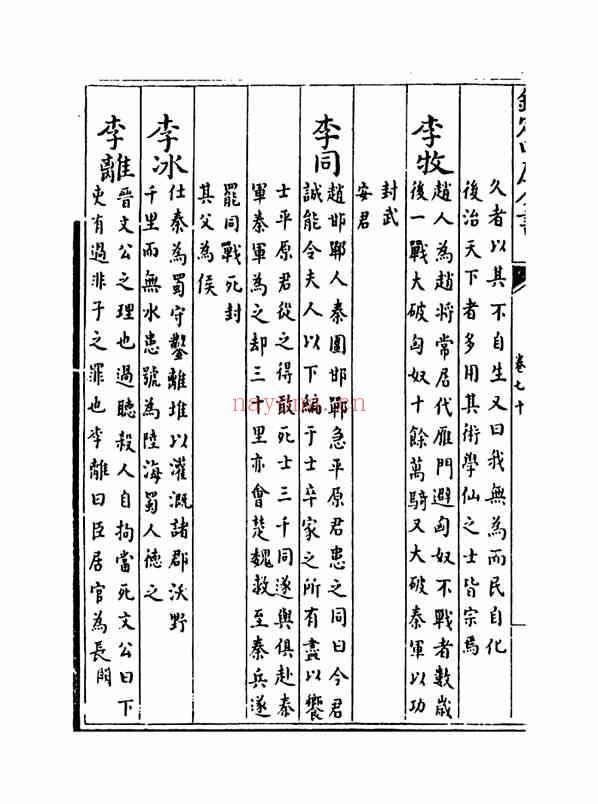 欽定四庫全書
卷七十
久者以其不自生又曰我無為而民自化
後治天下者多用其術學仙之士皆宗焉
李牧
趙人為趙將常居代雁門避匈奴不戰者數歲
後一戰大破匈奴十餘萬騎又大破秦軍以功
封武
安君
李同
趙邯鄲人秦圍邯鄲急平原君患之同曰今君
誠能令夫人以下編于士卒家之所有盡以饗
士平原君從之得敢死士三千同遂與俱赴秦
軍秦軍為之却三十里亦會楚魏救至秦兵遂
罷同戰死封
其父為侯
李冰
仕秦為蜀守鑿離堆以灌溉諸郡沃野
千里而無水患號為陸海蜀人徳之
李離
晉文公之理也過聽殺人自拘當死文公曰下
吏有過非子之罪也李離曰臣居官為長閼
nayona.cn